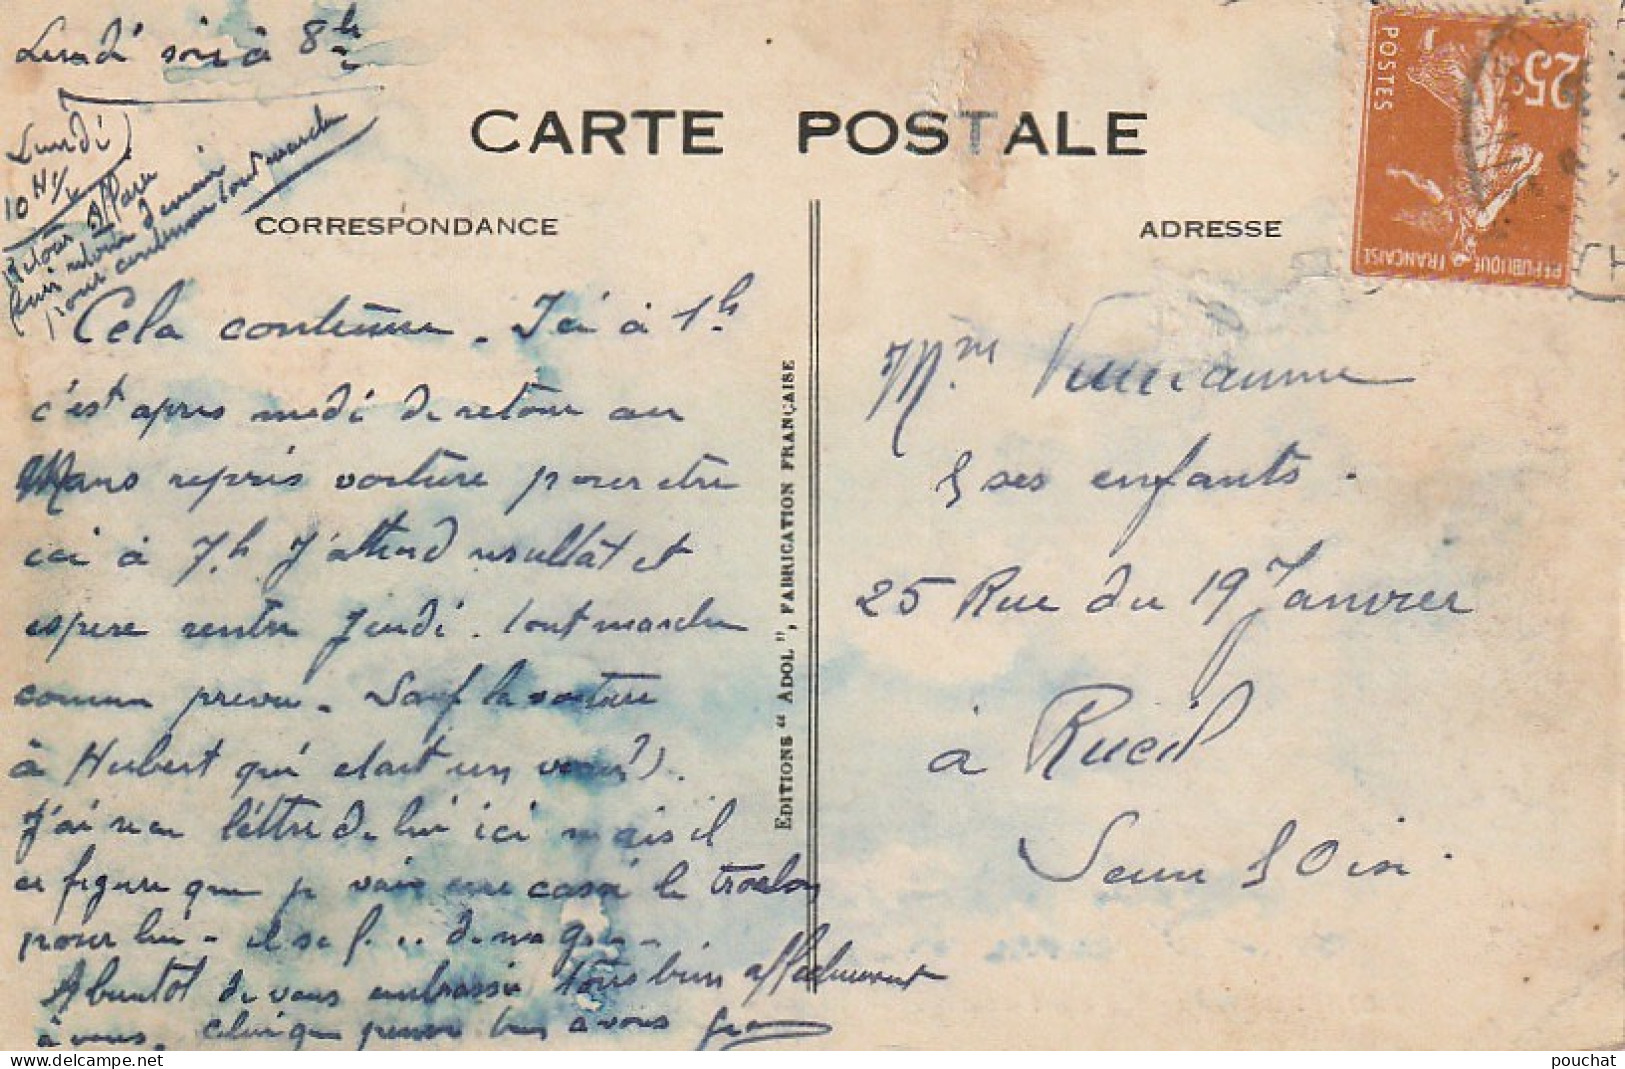 Lundi soir à 8h
Lundi
10 H 1/2
Retour
retour demain
pour continuer tout marche
CARTE POSTALE
CORRESPONDANCE
ADRESSE
POSTES
25c
REPUBLIQUE FRANÇAISE
Cela continue. Ici à 1h
c'est apres midi de retour au
Mans repris voiture pour etre
ici à 7h J'attend resultat et
espere rentrer Jeudi. tout marche
comme prevu. Sauf la voiture
à Hubert qui etait un
J'ai reçu lettre de lui ici mais il
ce figure que je vais me casser le
pour lui. il se f... de ma
A bientot de vous embrasser tous bien affectueusement
à vous. Celui qui pense bien a vous
EDITIONS "ADOL", FABRICATION FRANÇAISE
Mme
& ses enfants.
25 Rue du 19 Janvier
à Rueil
Seine & Oise.
pouchat